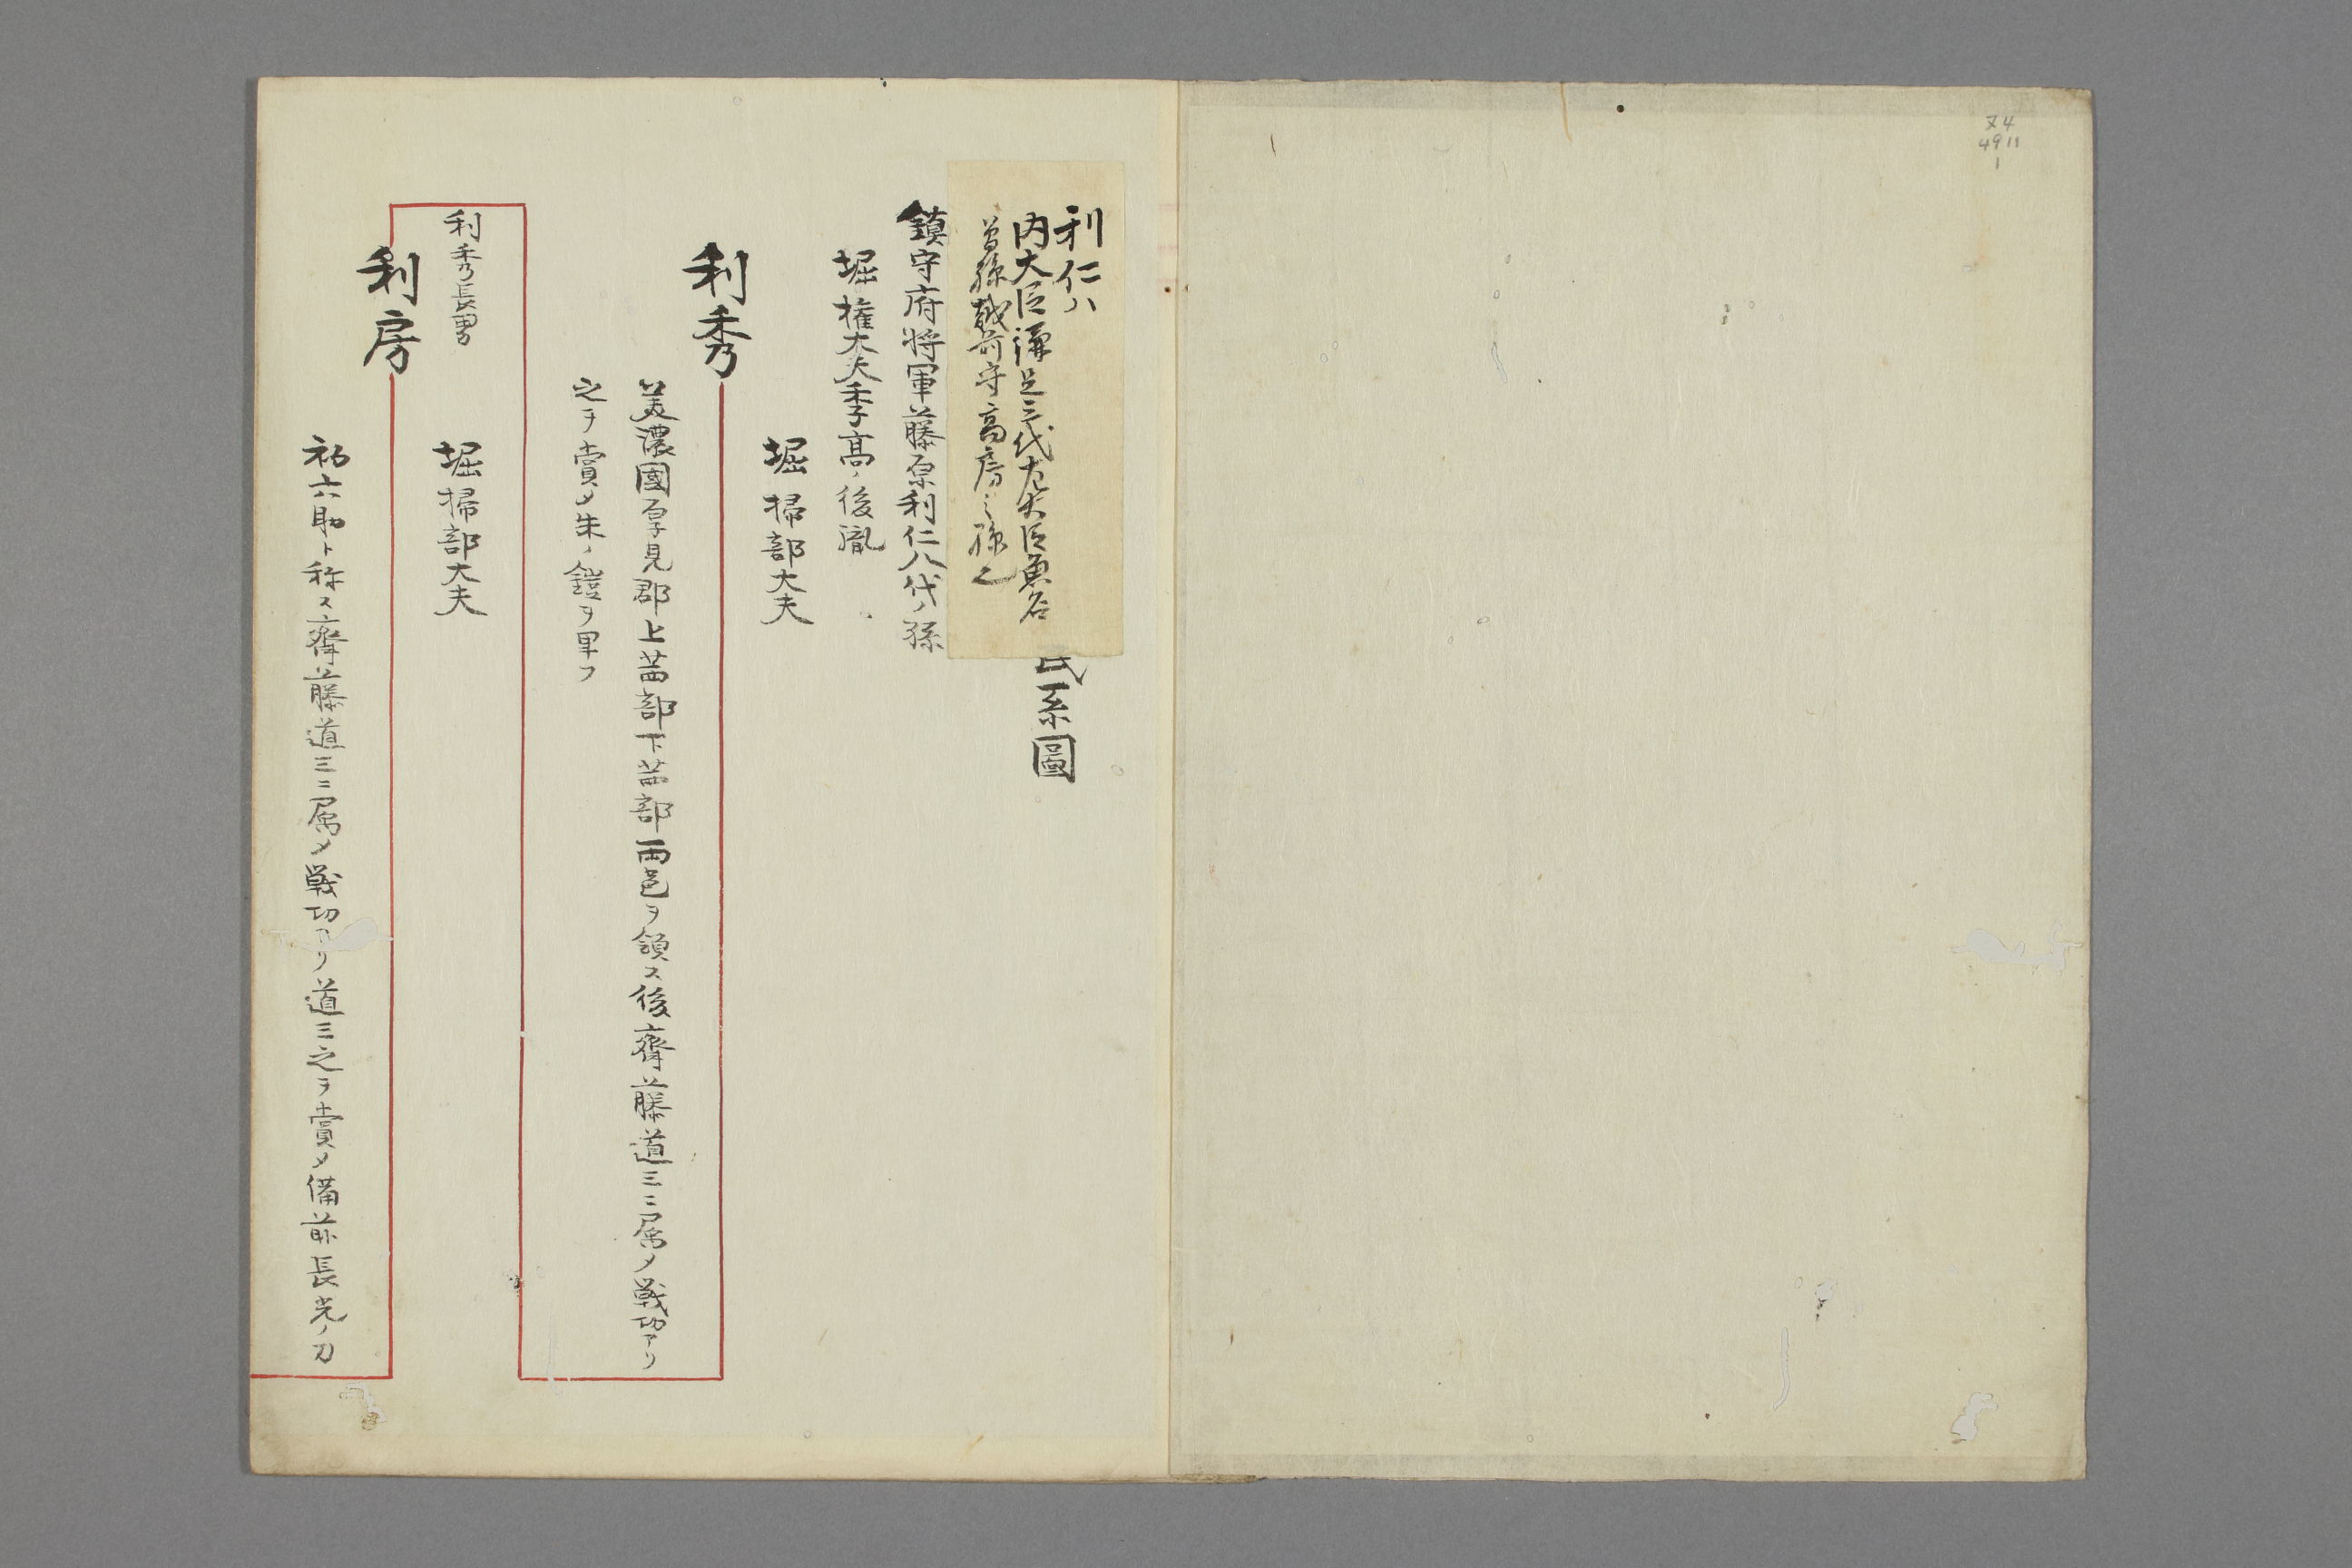 又4
4911
1
利仁ハ
内大臣鎌足三代左大臣魚名
曽孫越前守高房之孫也
氏系圖
鎮守府将軍藤原利仁八代ノ孫
堀権大夫季高ノ後胤
堀掃部大夫
利秀
美濃國厚見郡上茜部下茜部両邑ヲ領ス後齊藤道三ニ属メ戦功アリ
之ヲ賞メ朱ノ鎧ヲ畀フ
利秀長男
堀掃部大夫
利房
初六助ト称ス齊藤道三ニ属メ戦功アリ道三之ヲ賞メ備前長光ノ刀